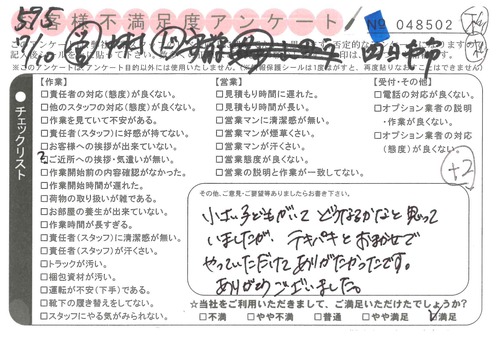 お客様不満足度アンケート
No 048502
チェックリスト
【作業】
□責任者の対応(態度)が良くない。
□他のスタッフの対応(態度)が良くない。
□作業を見ていて不安がある。
□責任者(スタッフ)に好感が持てない。
□お客様への挨拶が出来ていない。
□ご近所への挨拶・気遣いが無い。
□作業開始前の内容確認がなかった。
□作業開始時間が遅れた。
□荷物の取り扱いが雑である。
□お部屋の養生が出来ていない。
□作業時間が長すぎる。
□責任者(スタッフ)に清潔感が無い。
□責任者(スタッフ)が汗くさい。
□トラックが汚い。
□梱包資材が汚い。
□運転が不安(下手)である。
□靴下の履き替えをしてない。
□スタッフにやる気がみられない。
【営業】
□見積もり時間に遅れた。
□見積もり時間が長い。
□営業マンに清潔感が無い。
□営業マンが煙草くさい。
□営業マンが汗くさい。
□営業態度が良くない。
□営業の説明と作業が一致してない。
【受付・その他】
□電話の対応が良くない。
□オプション業者の説明
・作業が良くない。
□オプション業者の対応
(態度)が良くない。
+2
その他、ご意見・ご要望等ありましたらお書き下さい。
小さい子どもがいて どうなるかなと思って
いましたが、テキパキとおまかせで
やっていただけてありがたかったです。
ありがとうございました。
☆当社をご利用いただきまして、ご満足いただけたでしょうか?
□不満 □やや不満 □普通 □やや満足 ☑満足